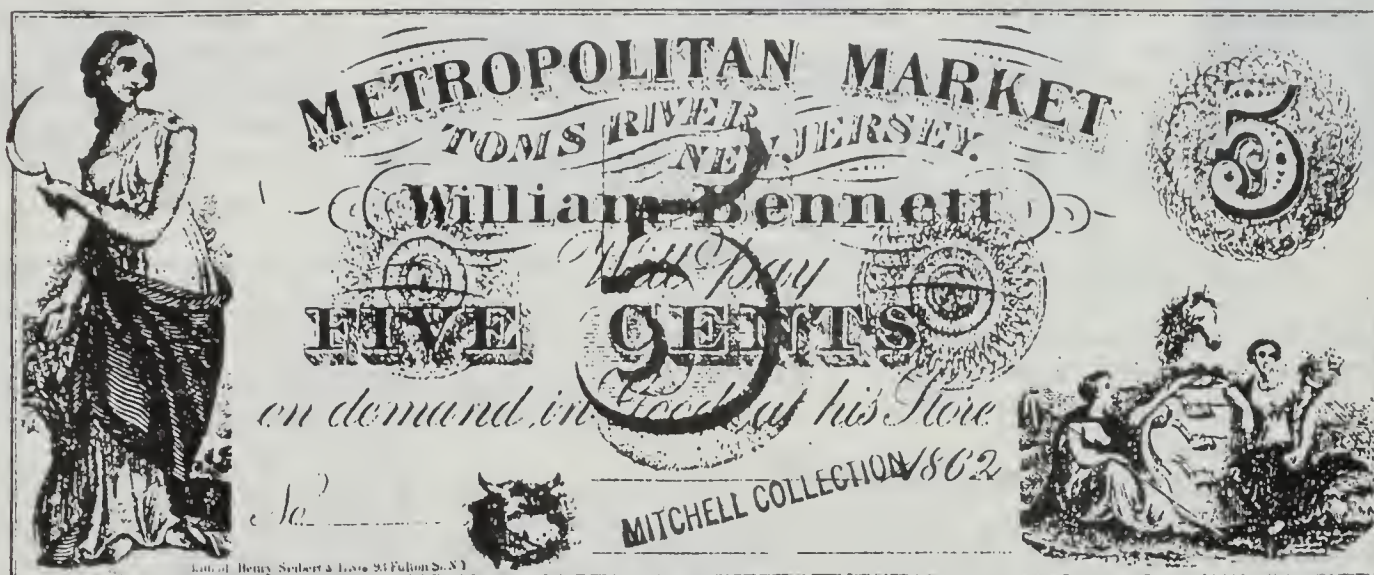 METROPOLITAN MARKET
TOMS RIVER
NEW JERSEY.
5
William Bennett
Will pay
FIVE CENTS
5
on demand, in Goods at his Store
1862
No
MITCHELL COLLECTION
Lith. of Henry Seibert & Bros 93 Fulton St. N.Y